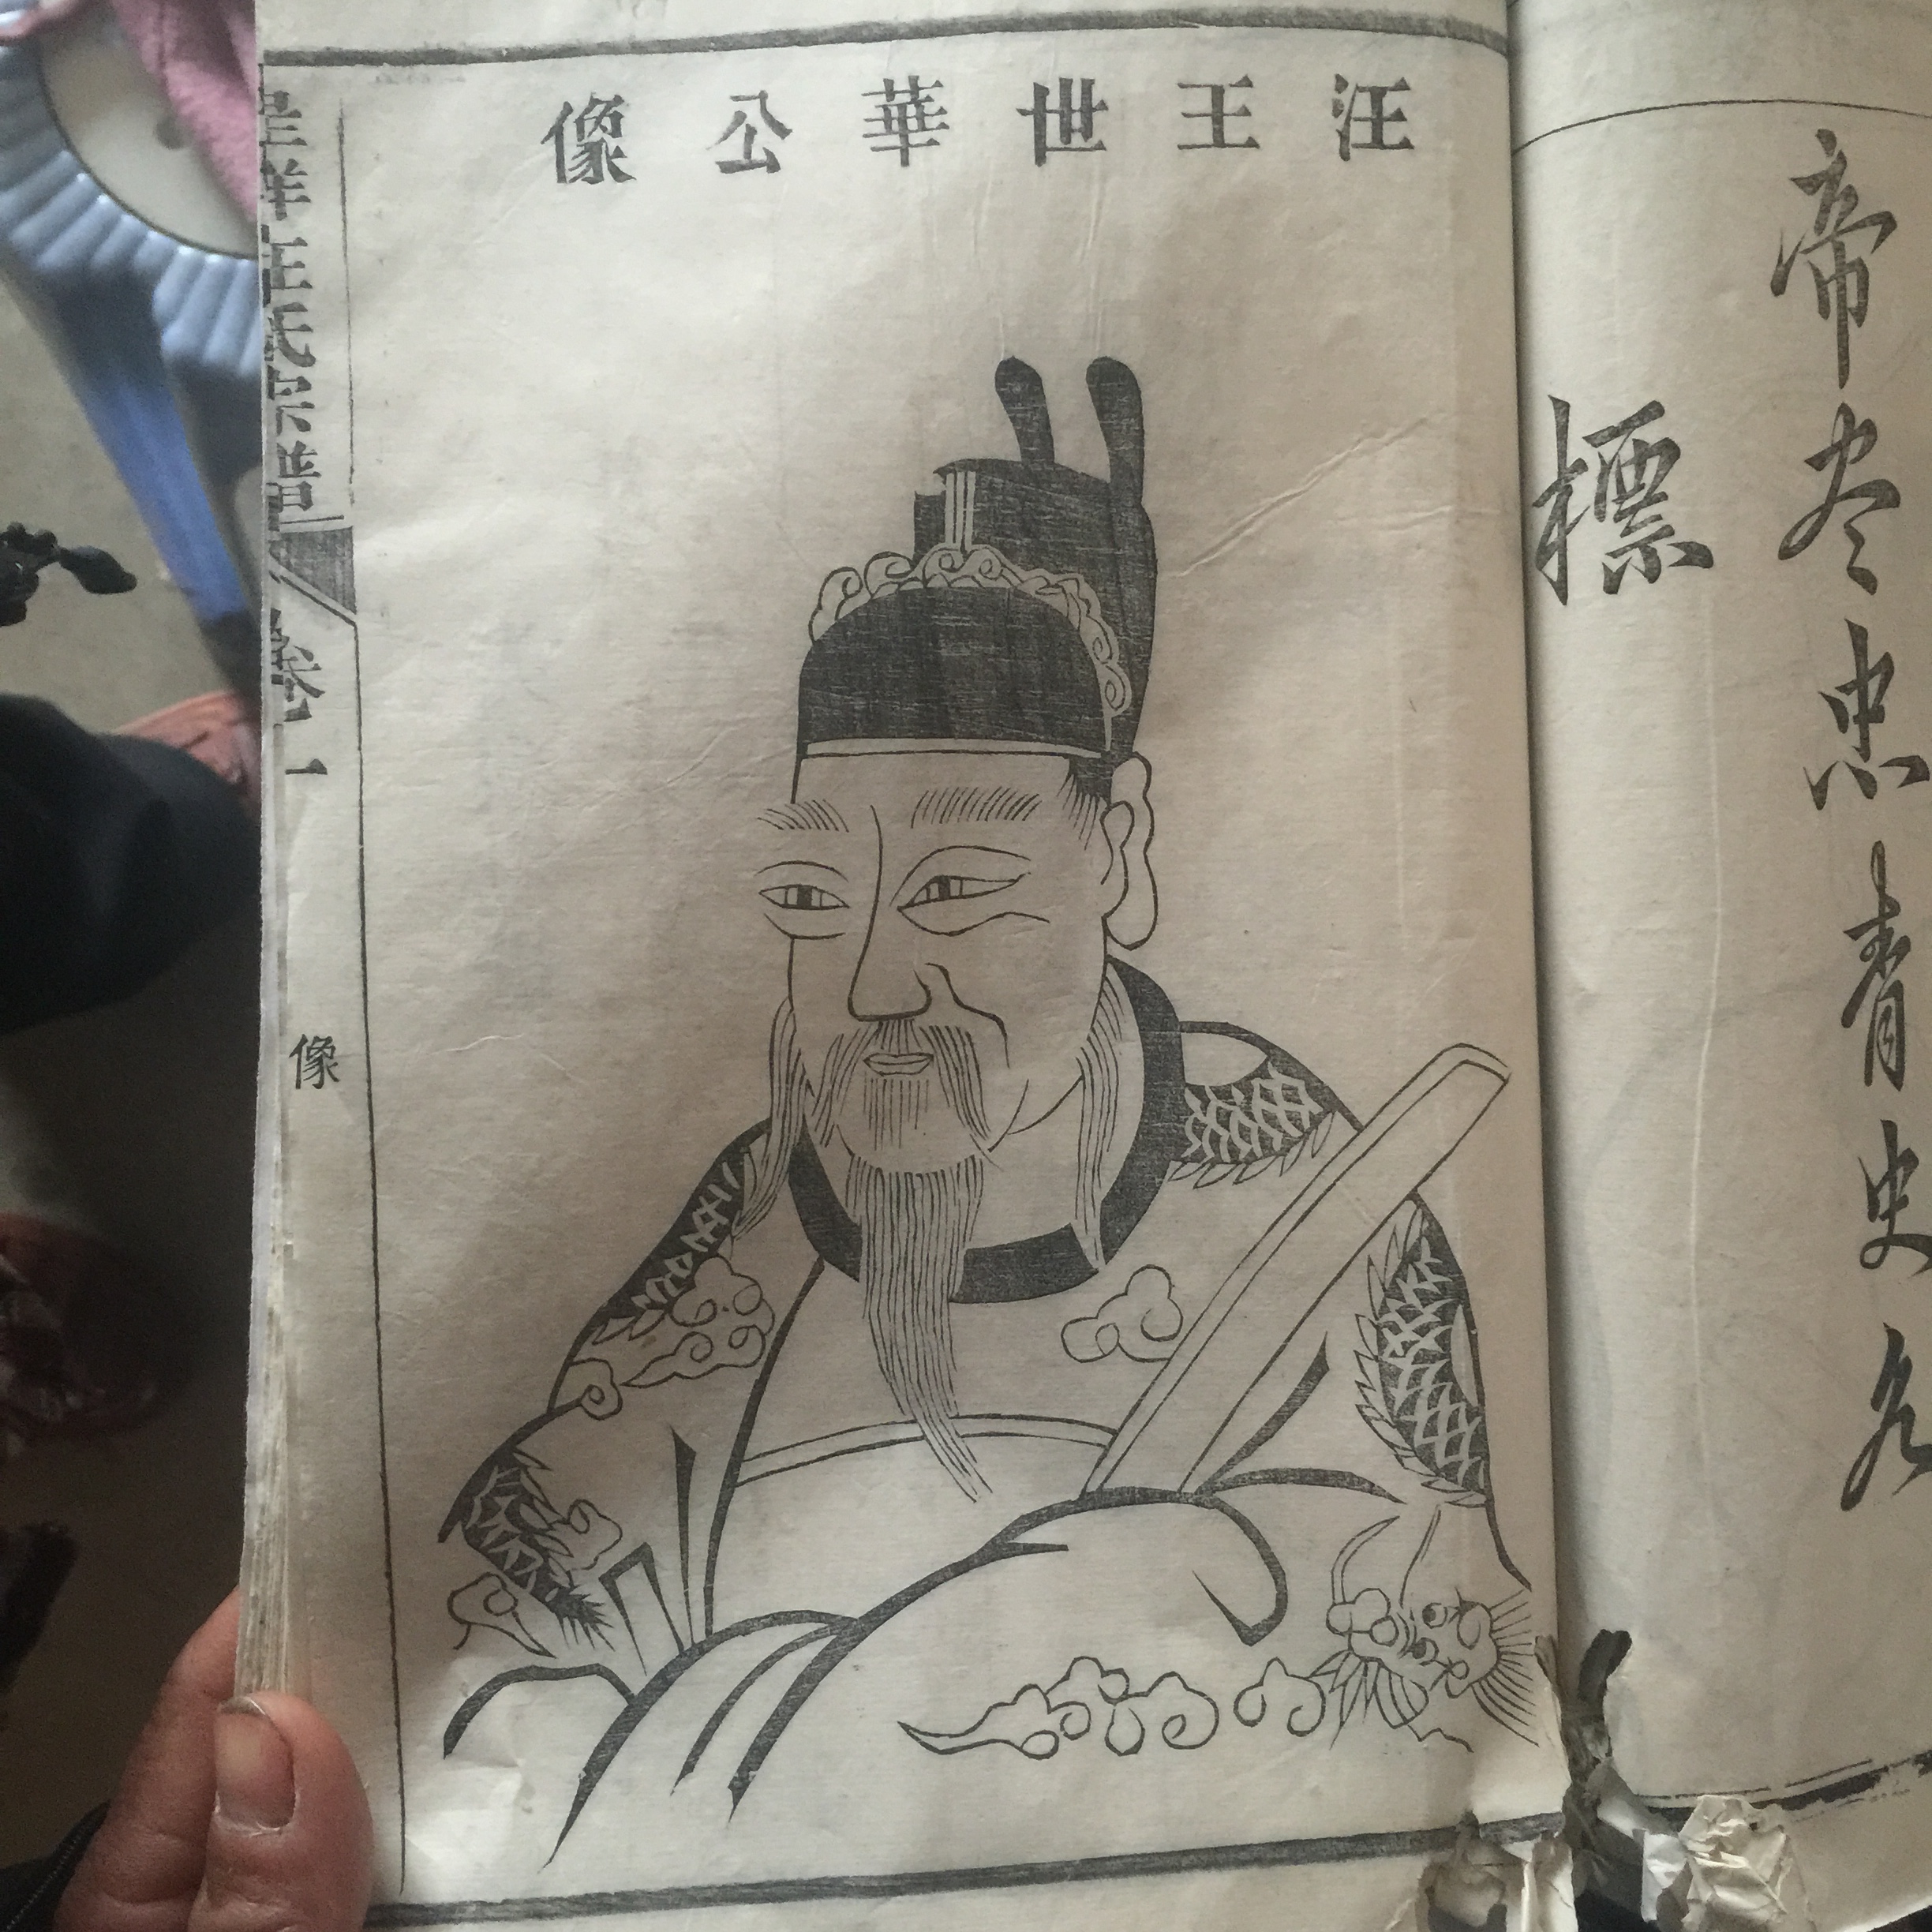 帝尽忠青史名
標
汪王世華公像
汪氏宗譜
卷一
像